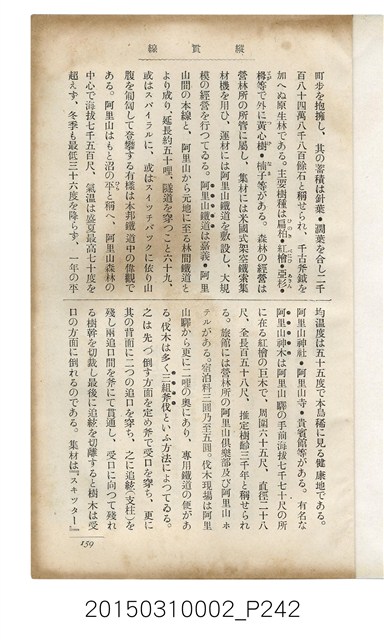 縱貫線
町步を抱擁し、其の蓄積は針葉・濶葉を合し二千
百八十四萬八千八百餘石と稱せられ、千古斧鉞を
加へぬ原生林である。主要樹種は扁柏・紅檜・亞杉・
栂等で外に黃心樹・楠子等がある。森林の經營は
營林所の所管に屬し、集材には米國式架空鐵索集
材機を用ひ、運材には阿里山鐵道を敷設し、大規
模の經營を行つてゐる。阿里山鐵道は嘉義・阿里
山間の本線と、阿里山から元地に至る林間鐵道と
より成り、延長約五十哩、隧道を穿つこと六十九、
或はスパイラルに、或はスイッチバックに依り山
腹を匍匐して登攀する有樣は本邦鐵道中の偉觀で
ある。阿里山はもと沼の平と稱へ、阿里山森林の
中心で海拔七千五百尺、氣溫は盛夏最高七十度を
超えず、冬季も最低三十六度を降らず、一年の平
均溫度は五十五度で本島稀に見る健康地である。
阿里山神社・阿里山寺・貴賓館等がある。有名な
阿里山神木は阿里山驛の手前海拔七千七十尺の所
に在る紅檜の巨木で、周圍六十五尺、直徑二十八
尺、全長百五十八尺、推定樹齡三千年と稱せられ
る。旅館には營林所の阿里山俱樂部及び阿里山ホ
テルがある。宿泊料三圓乃至五圓。伐木現場は阿里
山驛から更に二哩の奧にあり、專用鐵道の便があ
る。伐木は多く三組斧伐といふ方法によつてゐる。
之は先づ倒す方面を定め斧で受口を穿ち、更に
其の背面に二つの追口を穿ち、之に追絃(支柱)を
殘し兩追口間を斧にて貫通し、受口に向つて殘れ
る樹幹を切裁し最後に追絃を切離すると樹木は受
口の方面に倒れるのである。集材は『スキッター』
159
20150310002_P242